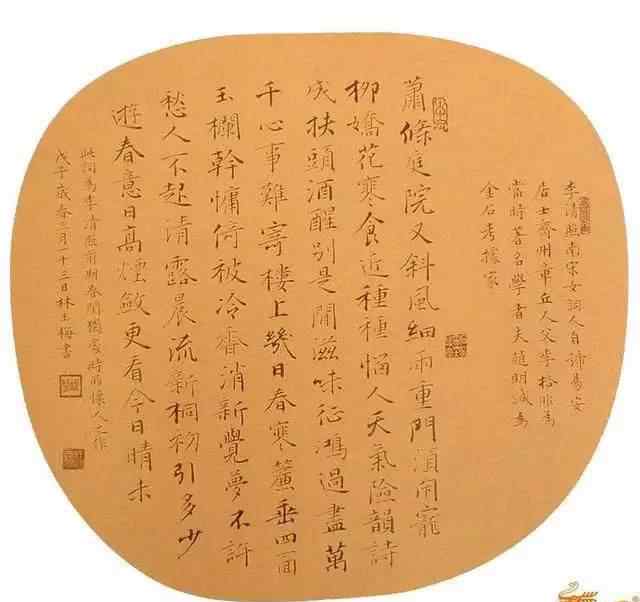 李清照南宋女詞人自號易安
居士齊州章丘人父李格非為
當時著名學者夫趙明誠為
金石考據家
蕭條庭院又斜風細雨重門須閉寵
柳嬌花寒食近種種惱人天氣險韻詩
成扶頭酒醒別是閒滋味征鴻過盡萬
千心事難寄樓上幾日春寒簾垂四面
玉欄幹慵倚被冷香消新覺夢不許
愁人不起清露晨流新桐初引多少
遊春意日高煙斂更看今日晴未
此詞為李清照前期春閨獨處時的懷人之作
歲春月十三日林玉梅書